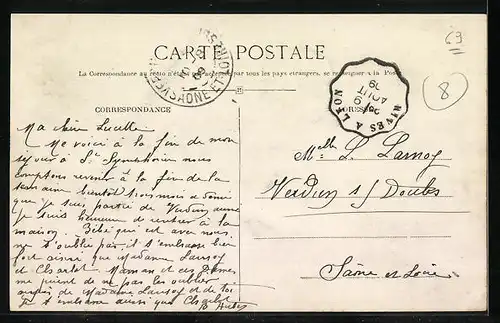 69
CARTE POSTALE
La Correspondance au recto n'est pas acceptée par tous les pays étrangers, se renseigner à la Poste
8
RIVES A LYON
9
AOUT
09
CORRESPONDANCE
Ma chère Lucette
Me voici à la fin de mon
séjour à St Symphorien nous
comptons rentrer à la fin de la
semaine bientôt trois mois
que je suis partie de Verdun aussi
je suis heureuse de rentrer à la
maison. Bébé qui est avec nous
ne t'oublie pas il t'embrasse bien
fort ainsi que Madame Lannoy
et Charlot. Maman et ces Dames
me prient de ne pas les oublier
auprès de Madame Lannoy et de toi
Je t'embrasse aussi que Charlot
Melle L. Lannoy
Verdun s/ Doubs
Saône et Loire